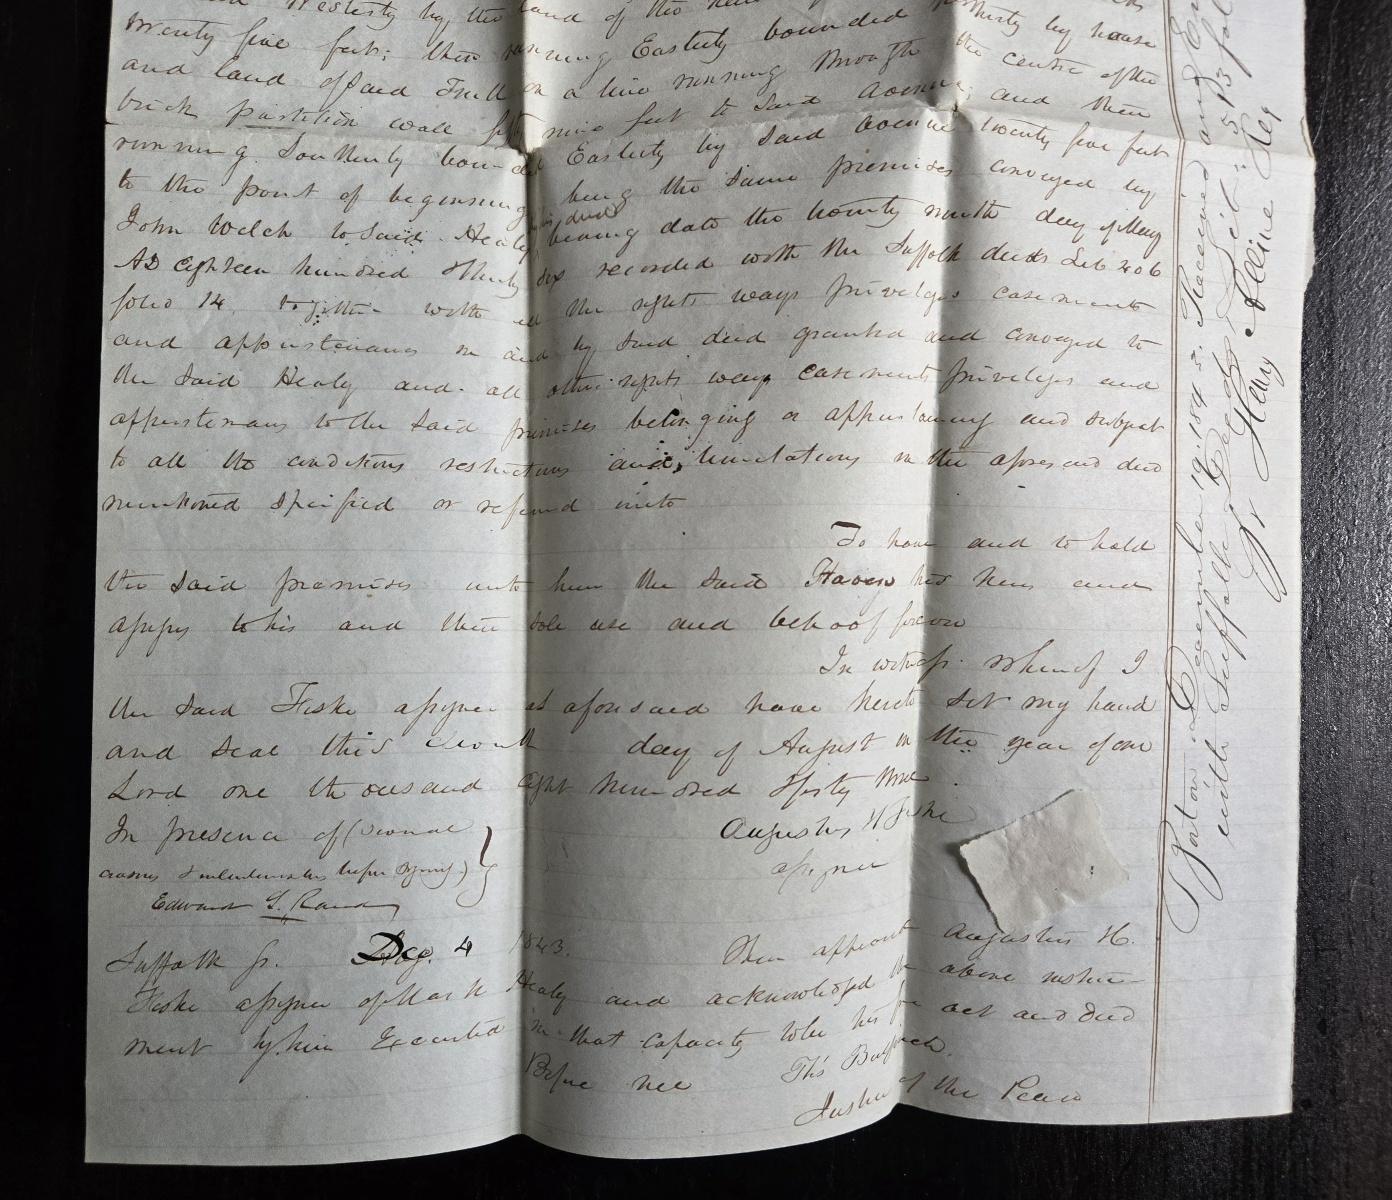 Westerly by the land of the
twenty five feet; then running Easterly bounded Northerly by house
and land of said Trull on a line running through the centre of the
brick partition wall fifty nine feet to said Avenue and then
running Southerly bounded Easterly by said avenue twenty five feet
to the point of beginning being the same premises conveyed by
John Welch to said Healy by his deed bearing date the twenty ninth day of May
AD eighteen hundred & thirty six recorded with the Suffolk deeds Lib 406
folio 14. together with all the rights ways privileges easements
and appurtenances in and by said deed granted and conveyed to
the said Healy and all other rights ways easements privileges and
appurtenances to the said premises belonging or appurtaining and subject
to all the conditions restrictions and limitations in the aforesaid deed
mentioned specified or referred unto
To have and to hold
the said premises unto him the said Haven his heirs and
assigns to his and their sole use and behoof forever
In witness whereof I
the said Fiske assignee as aforesaid have hereto set my hand
and seal this day of August in the year of our
Lord one thousand eight hundred & forty three.
Augustus H Fiske
assignee
In presence of (several
erasures & interlineations before signing)
Edward S. Rand
Suffolk ss. Dec. 4 1843. Then appeared Augustus H.
Fiske assignee of Mark Healy and acknowledged the above instru-
ment by him Executed in that capacity to be his free act and deed
Before me Thos Bulfinch.
Justice of the Peace
Boston December 19. 1843. Received and
with Suffolk Deeds Lib: 513 fol
Pr Henry Alline Reg